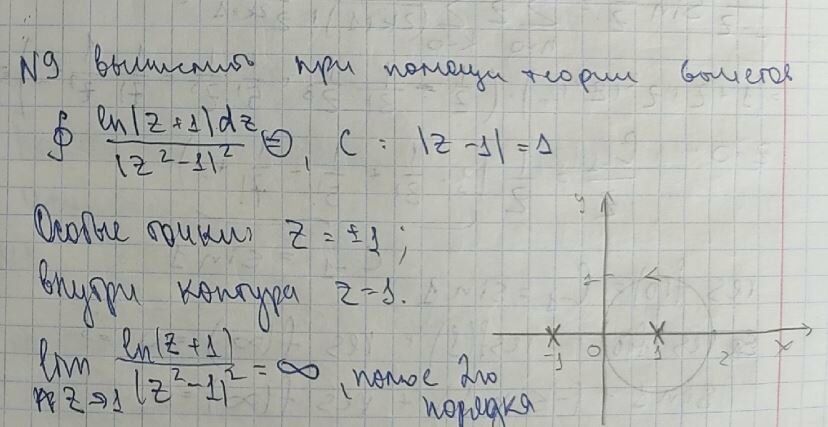 N9 вычислить при помощи теории вычетов
∮ ln(z+1)dz / (z²-1)² ⊜, C: |z-1|=1
Особые точки: z = ±1;
внутри контура z=1.
lim z→1 ln(z+1) / (z²-1)² = ∞, полюс 2го порядка
y
1
-1 0 1 2 x